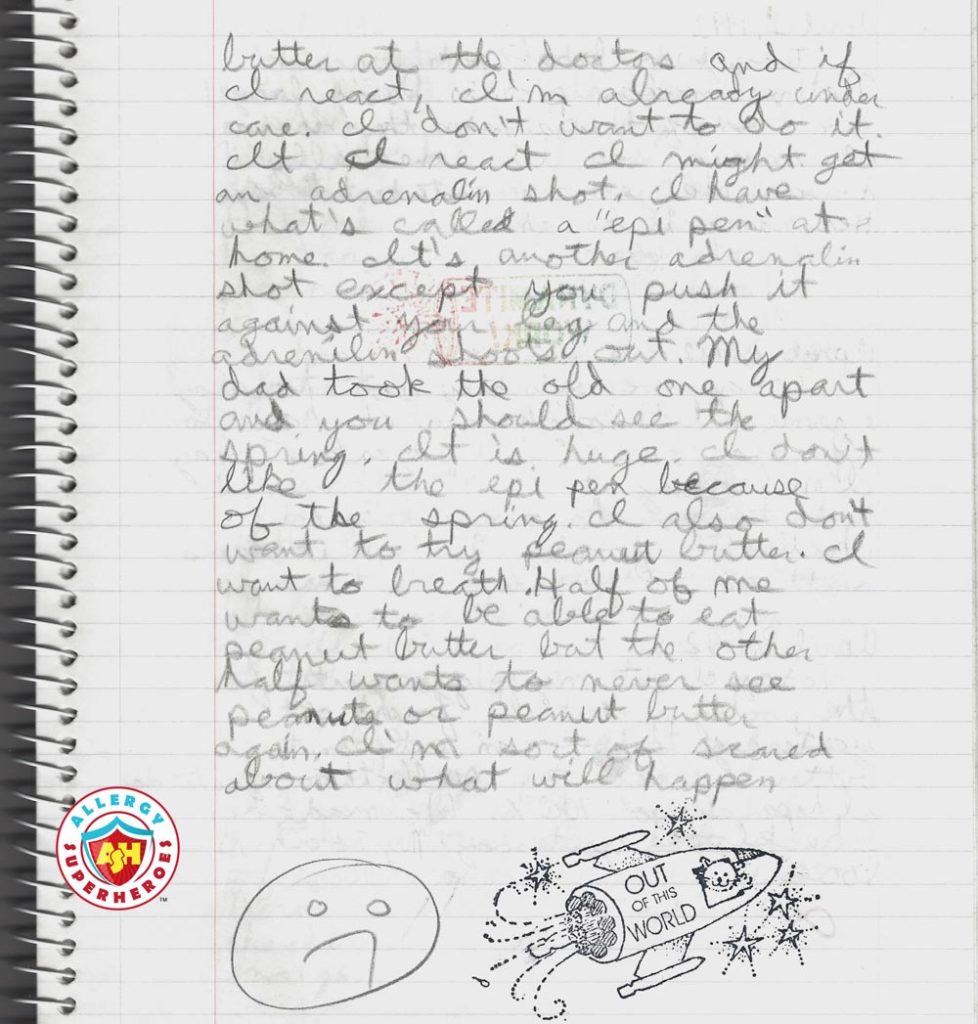 butter at the doctors and if
I react, I'm already under
care. I don't want to do it.
It I react I might get
an adrenalin shot. I have
what's called a "epi pen" at
home. It's another adrenalin
shot except you push it
against your leg and the
adrenilin shoots out. My
dad took the old one apart
and you should see the
spring. It is huge. I don't
like the epi pen because
of the spring. I also don't
want to try peanut butter. I
want to breath. Half of me
wants to be able to eat
peanut butter but the other
half wants to never see
peanuts or peanut butter
again. I'm sort of scared
about what will happen
ALLERGY
ASH
SUPERHEROES
TM
OUT
OF THIS
WORLD